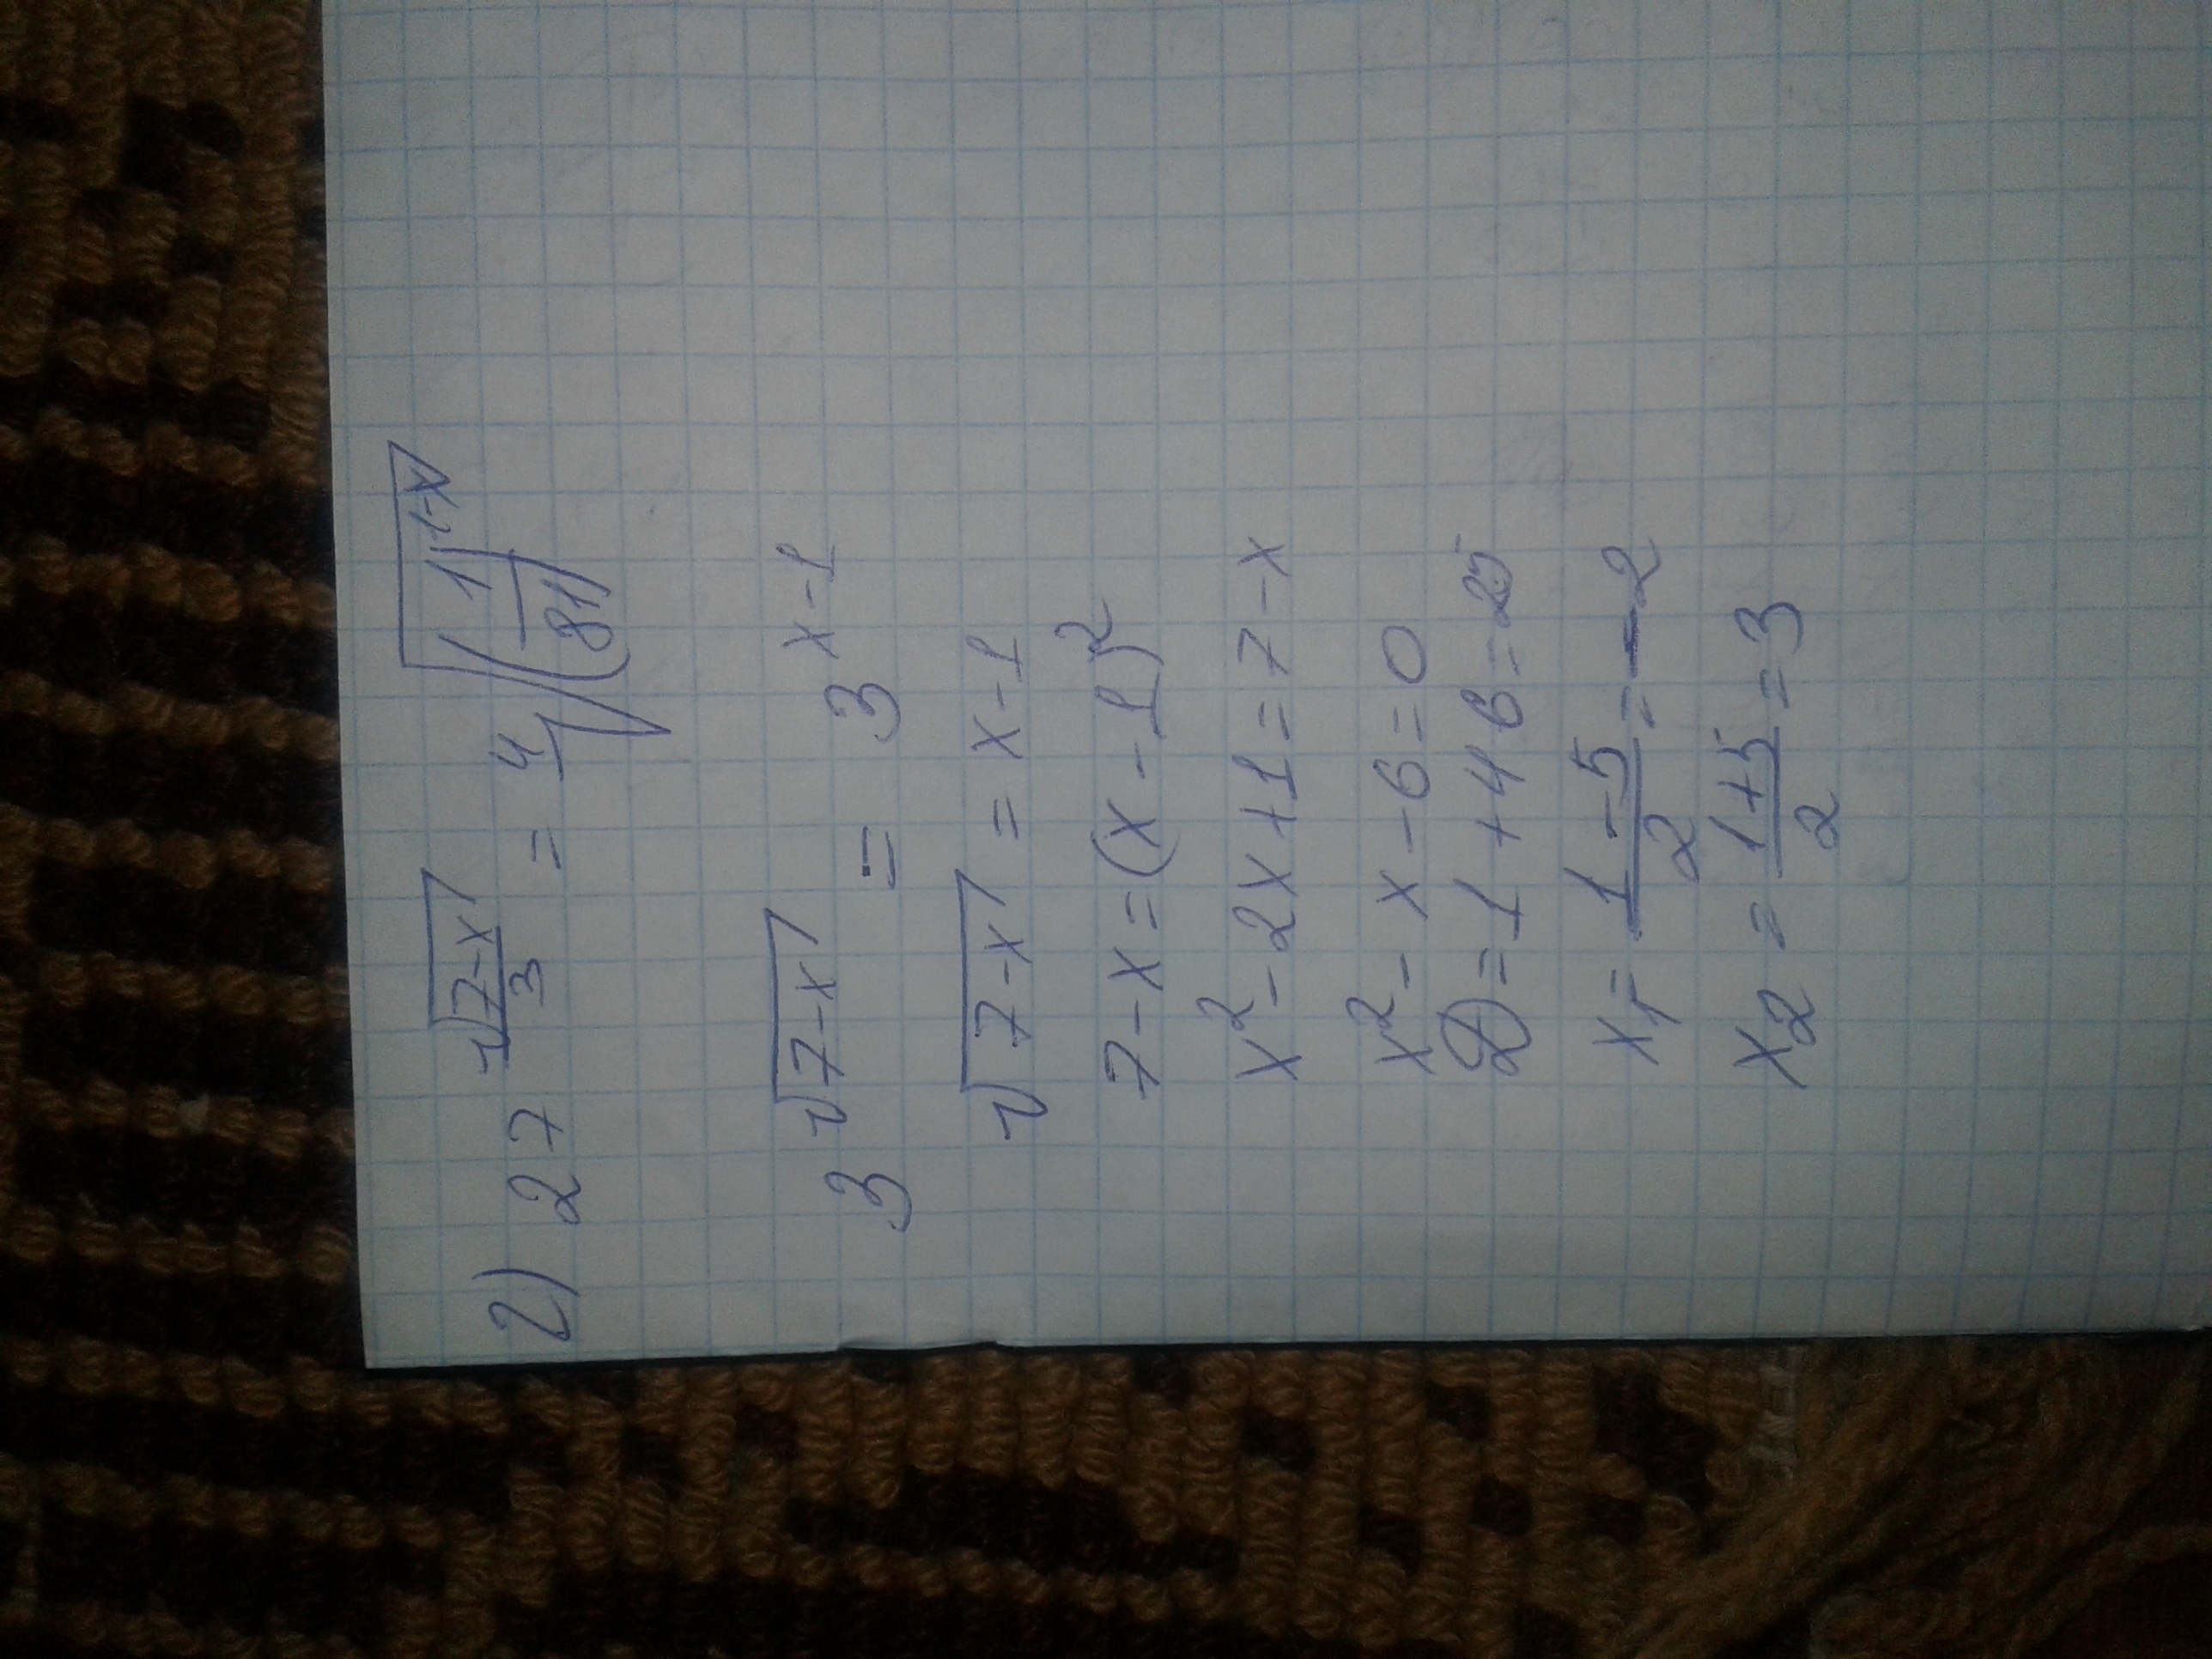 2) 27^(√(7-x)/3) = ⁴√((1/81)^(1-x))
3^√(7-x) = 3^(x-1)
√(7-x) = x-1
7-x=(x-1)²
x²-2x+1=7-x
x²-x-6=0
D=1+46=25
x₁=(1-5)/2=-2
x₂=(1+5)/2=3